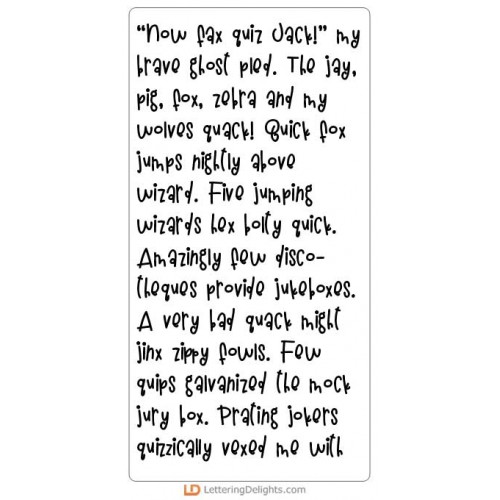 “Now fax quiz Jack!” my
brave ghost pled. The jay,
pig, fox, zebra and my
wolves quack! Quick fox
jumps nightly above
wizard. Five jumping
wizards hex bolty quick.
Amazingly few disco-
theques provide jukeboxes.
A very bad quack might
jinx zippy fowls. Few
quips galvanized the mock
jury box. Prating jokers
quizzically vexed me with
LD LetteringDelights.com